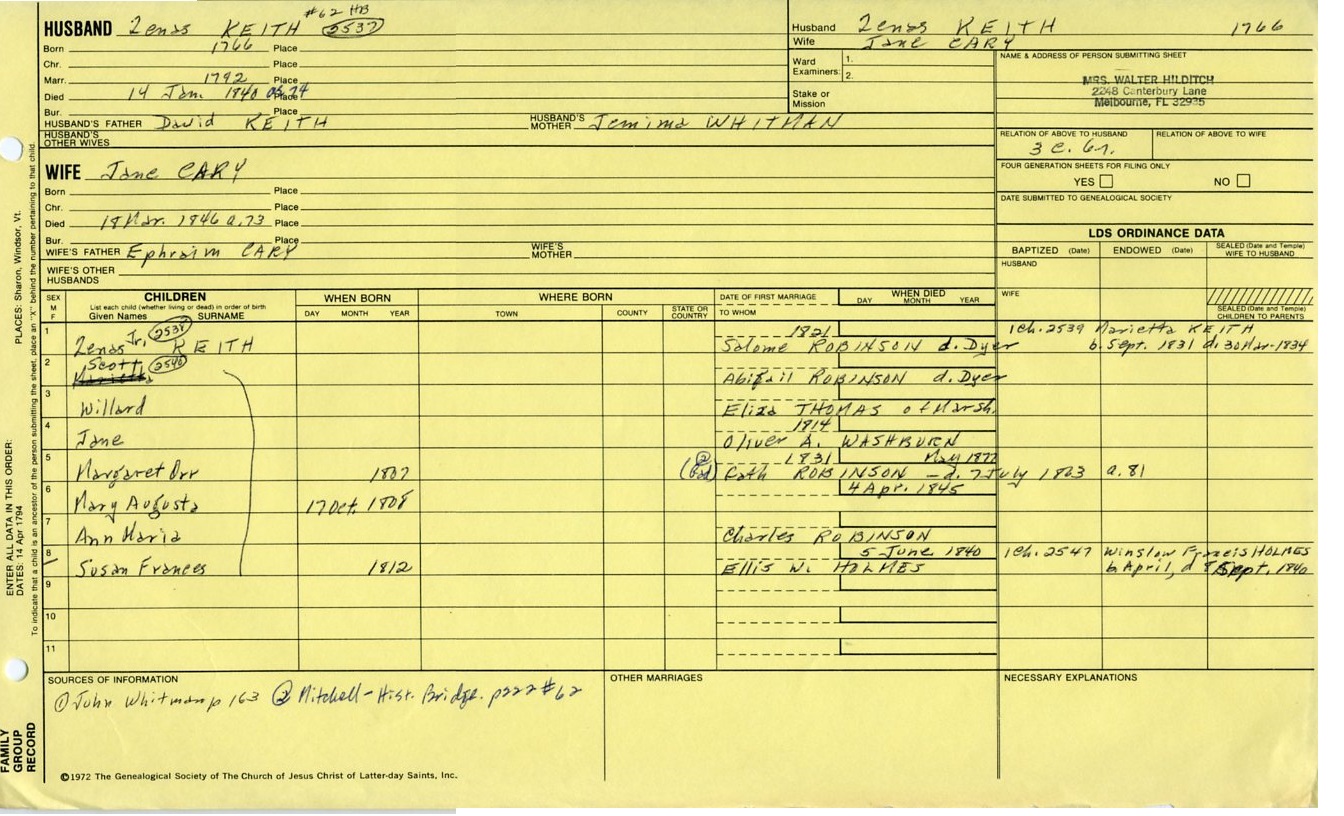 #62 HB
HUSBAND Zenas KEITH 2537
Born 1766 Place
Chr. Place
Marr. 1792 Place
Died 14 Jan. 1840 ae 74 Place
Bur. Place
HUSBAND'S FATHER David KEITH HUSBAND'S MOTHER Jemima WHITMAN
HUSBAND'S OTHER WIVES
Husband Zenas KEITH 1766
Wife Jane CARY
Ward Examiners: 1.
2.
Stake or Mission
NAME & ADDRESS OF PERSON SUBMITTING SHEET
MRS. WALTER HILDITCH
2248 Canterbury Lane
Melbourne, FL 32935
RELATION OF ABOVE TO HUSBAND RELATION OF ABOVE TO WIFE
3 c. 6r.
FOUR GENERATION SHEETS FOR FILING ONLY
YES NO
DATE SUBMITTED TO GENEALOGICAL SOCIETY
WIFE Jane CARY
Born Place
Chr. Place
Died 18 Mar. 1846 a.73 Place
Bur. Place
WIFE'S FATHER Ephraim CARY WIFE'S MOTHER
WIFE'S OTHER HUSBANDS
LDS ORDINANCE DATA
BAPTIZED (Date) ENDOWED (Date) SEALED (Date and Temple) WIFE TO HUSBAND
HUSBAND
WIFE
SEALED (Date and Temple) CHILDREN TO PARENTS
SEX M F
CHILDREN
List each child (whether living or dead) in order of birth
Given Names SURNAME
WHEN BORN
DAY MONTH YEAR
WHERE BORN
TOWN COUNTY STATE OR COUNTRY
DATE OF FIRST MARRIAGE
TO WHOM
WHEN DIED
DAY MONTH YEAR
1 Zenas Jr. 2538 KEITH 1821
Salome ROBINSON d. Dyer
1 ch. 2539 Marietta KEITH
b. Sept. 1831 d. 30 Mar-1834
2 Scott 2540
Abigail ROBINSON d. Dyer
3 Willard
Eliza THOMAS of Marsh.
4 Jane 1814
Oliver A. WASHBURN
5 Margaret Orr 1807 1831 May 1877
② Cath ROBINSON - d. 7 July 1863 a. 81
6 Mary Augusta 17 Oct. 1808 4 Apr. 1845
7 Ann Maria
Charles ROBINSON
8 Susan Frances 1812 5 June 1840
Ellis W. HOLMES
1 ch. 2547 Winslow Francis HOLMES
b. April, d Sept. 1840
9
10
11
SOURCES OF INFORMATION
① John Whitman p 163 ② Mitchell - Hist. Bridge. p222 #62
OTHER MARRIAGES
NECESSARY EXPLANATIONS
©1972 The Genealogical Society of The Church of Jesus Christ of Latter-day Saints, Inc.
FAMILY GROUP RECORD
ENTER ALL DATA IN THIS ORDER:
DATES: 14 Apr 1794
PLACES: Sharon, Windsor, Vt.
To indicate that a child is an ancestor of the person submitting the sheet, place an "X" behind the number pertaining to that child.